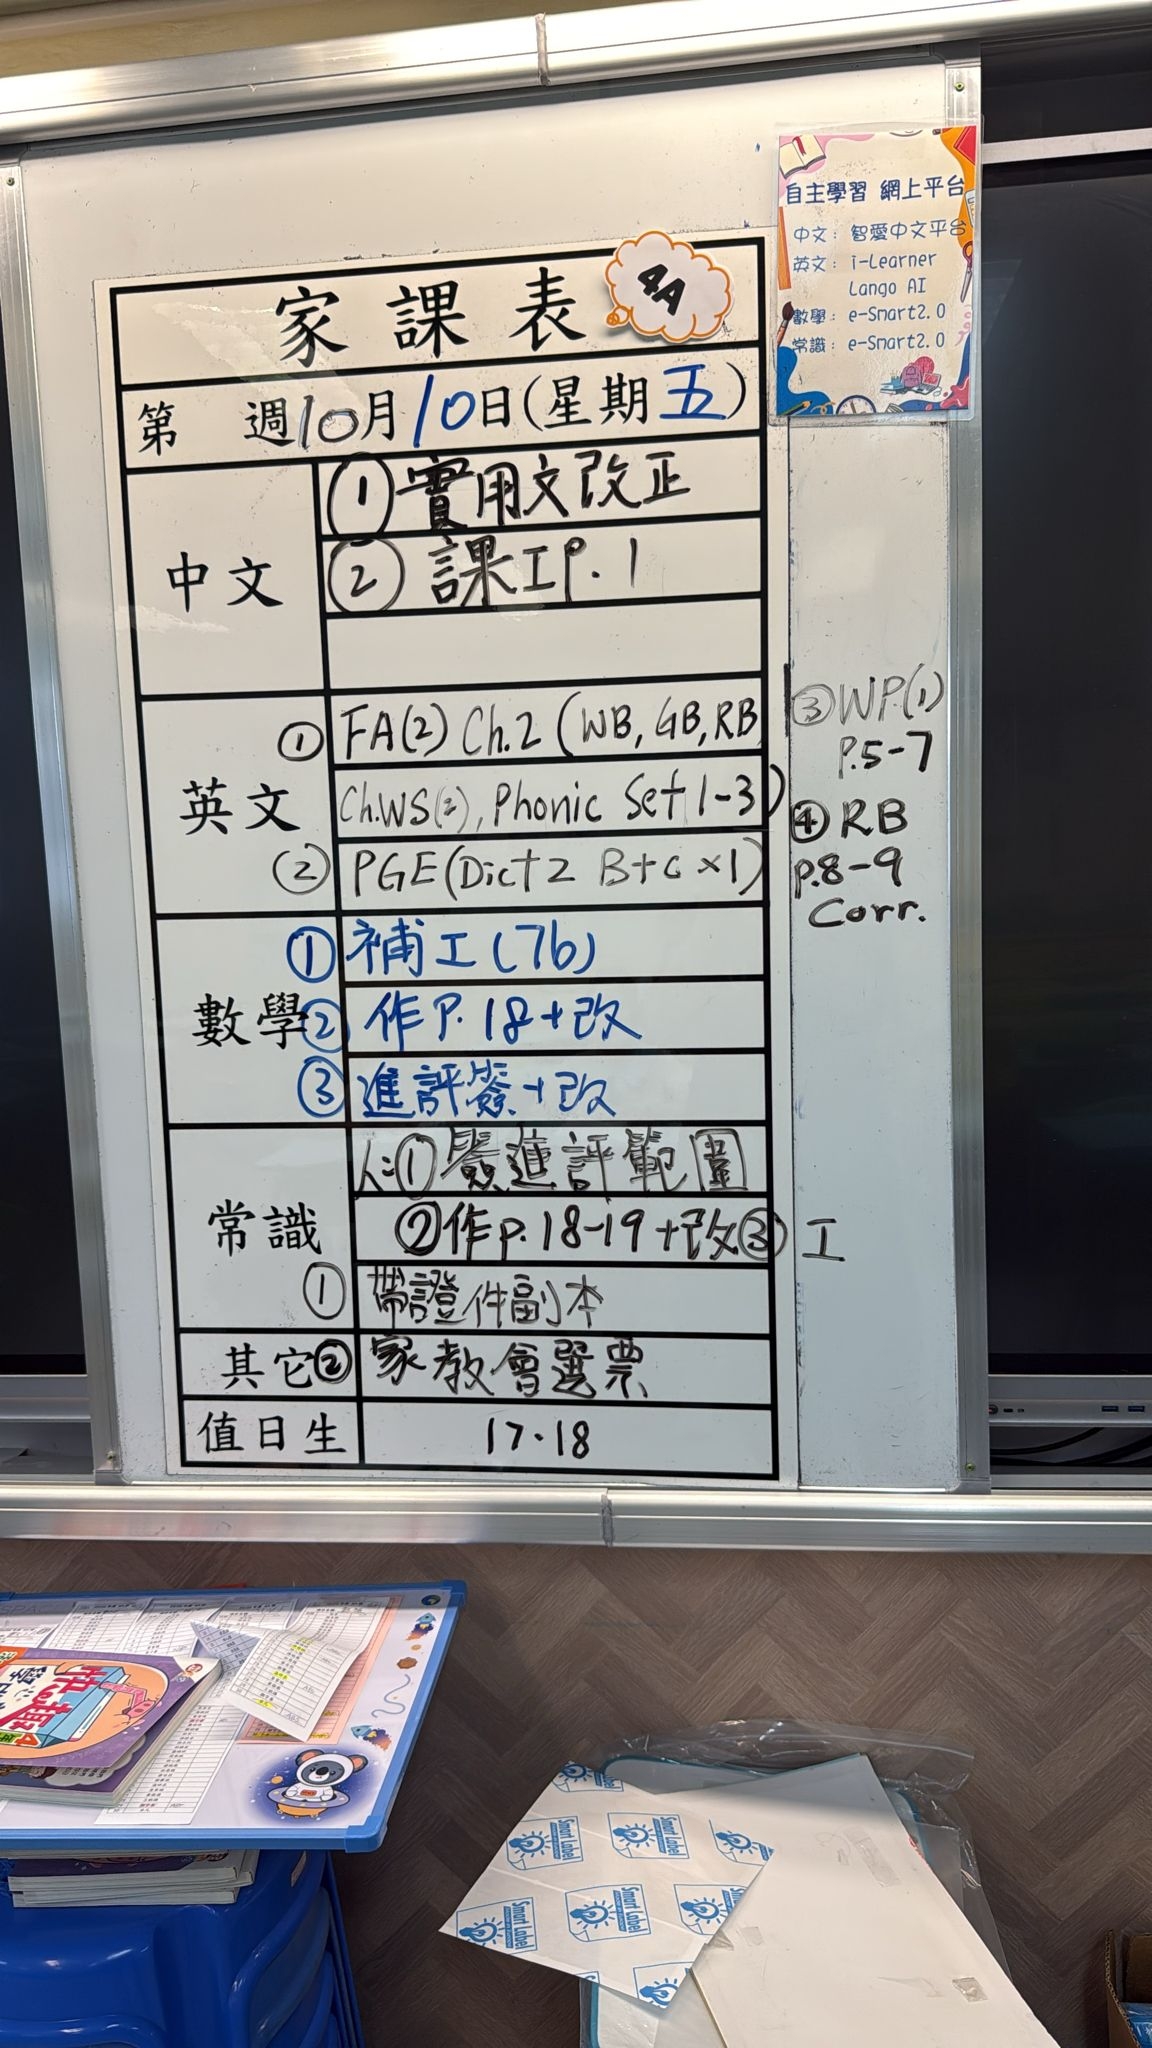 自主學習 網上平台
中文：智愛中文平台
英文：i-Learner
Lango AI
數學：e-Smart2.0
常識：e-Smart2.0
家課表
4A
第 週10月10日(星期五)
中文
① 實用文改正
② 課工P.1
英文
① FA(2) Ch.2 (WB, GB, RB,
Ch.WS(2), Phonic Set 1-3)
② PGE(Dict 2 B+C ×1)
③ WP(1)
P.5-7
④ RB
p.8-9
Corr.
數學
① 補工(7b)
② 作P.18+改
③ 進評簽+改
常識
人:① 簽進評範圍
② 作p.18-19+改 ③ 工
① 帶證件副本
其它
② 家教會選票
值日生
17.18
Smart Label
Smart Label
Smart Label
Smart Label
Smart Label